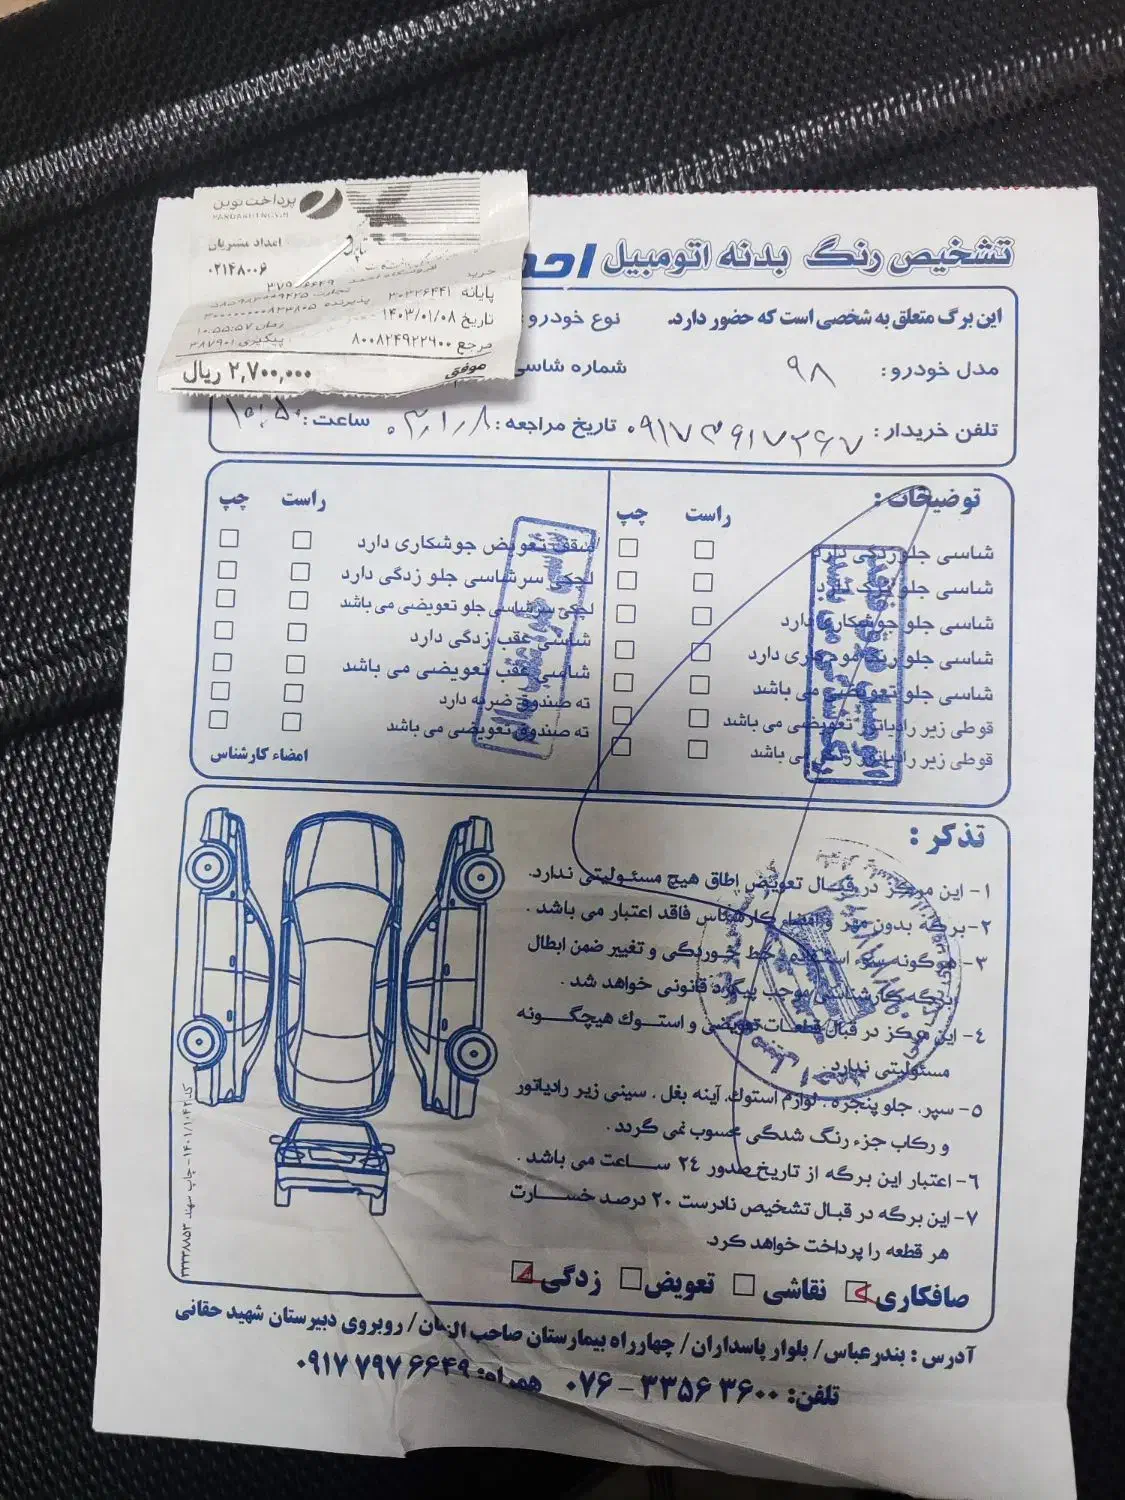 پرداخت نوین
امداد مشتریان
۰۲۱۴۸۰۰۶
خرید
پایانه ۲۰۲۲۶۴۴۱
پذیرنده
تاریخ ۱۴۰۳/۰۱/۰۸
زمان ۱۰:۵۵:۵۷
مرجع ۸۰۰۸۲۴۹۲۲۶۰۰
پیگیری ۳۸۷۹۰۱
موفق
۲,۷۰۰,۰۰۰ ریال
تشخیص رنگ بدنه اتومبیل
این برگ متعلق به شخصی است که حضور دارد.
نوع خودرو:
مدل خودرو: ۹۸
شماره شاسی
تلفن خریدار: ۰۹۱۷۳۹۱۷۲۶۷
تاریخ مراجعه: ۰۳,۱,۸
ساعت: ۱۰:۵۰
توضیحات:
راست چپ
شاسی جلو زدگی دارد
شاسی جلو ترک دارد
شاسی جلو جوشکاری دارد
شاسی جلو رنگ مو داری دارد
شاسی جلو تعویضی می باشد
قوطی زیر رادیاتور تعویضی می باشد
قوطی زیر رادیاتور می باشد
راست چپ
سقف تعویض جوشکاری دارد
لچکی سرشاسی جلو زدگی دارد
لچکی سرشاسی جلو تعویضی می باشد
شاسی عقب زدگی دارد
شاسی عقب تعویضی می باشد
ته صندوق ضربه دارد
ته صندوق تعویضی می باشد
امضاء کارشناس
تذکر:
۱- این مرکز در قبال تعویض اطاق هیچ مسئولیتی ندارد.
۲- برگه بدون مهر و امضاء کارشناس فاقد اعتبار می باشد.
۳- هرگونه سوء استفاده، خط خوردگی و تغییر ضمن ابطال
برگه کارشناسی موجب پیگرد قانونی خواهد شد.
۴- این مرکز در قبال قطعات تعویضی و استوک هیچگونه
مسئولیتی ندارد.
۵- سپر، جلو پنجره، لوازم استوک، آینه بغل، سینی زیر رادیاتور
و رکاب جزء رنگ شدگی محسوب نمی گردد.
۶- اعتبار این برگه از تاریخ صدور ۲۴ ساعت می باشد.
۷- این برگه در قبال تشخیص نادرست ۲۰ درصد خسارت
هر قطعه را پرداخت خواهد کرد.
صافکاری نقاشی تعویض زدگی
آدرس: بندرعباس/ بلوار پاسداران/ چهارراه بیمارستان صاحب الزمان/ روبروی دبیرستان شهید حقانی
تلفن: ۳۳۵۶۳۶۰۰ - ۰۷۶ همراه: ۰۹۱۷۷۹۷۶۶۴۹